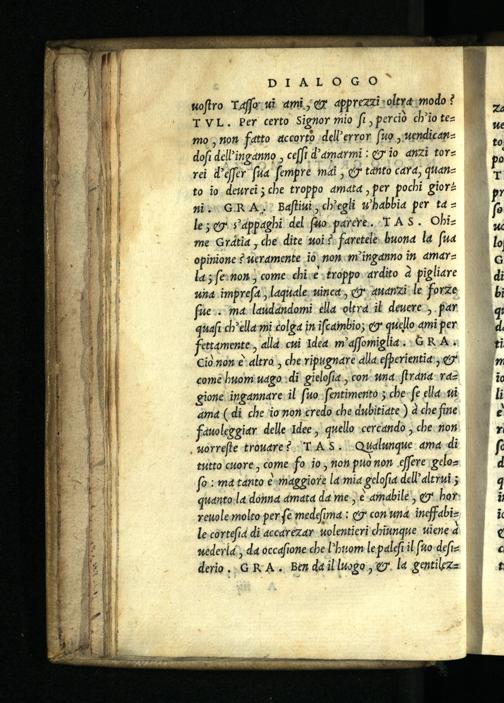 DIALOGO
uostro Tasso ui ami, & apprezzi oltra modo?
TVL. Per certo Signor mio si, perciò ch'io te-
mo, non fatto accorto dell'error suo, uendican-
dosi dell'inganno, cessi d'amarmi: & io anzi tor-
rei d'esser sua sempre mai, & tanto cara, quan-
to io deurei; che troppo amata, per pochi gior-
ni. GRA. Bastiui, ch'egli u'habbia per ta-
le; & s'appaghi del suo parere. TAS. Ohi-
me Gratia, che dite uoi? faretele buona la sua
opinione? ueramente io non m'inganno in amar-
la; se non, come chi è troppo ardito à pigliare
una impresa, laquale uinca, & auanzi le forze
sue. ma laudandomi ella oltra il deuere, par
quasi ch'ella mi colga in iscambio; & quello ami per
fettamente, alla cui Idea m'assomiglia. GRA.
Ciò non è altro, che ripugnare alla esperientia, &
come huom uago di gielosia, con una strana ra-
gione ingannare il suo sentimento; che se ella ui
ama (di che io non credo che dubitiate) à che fine
fauoleggiar delle Idee, quello cercando, che non
uorreste trouare? TAS. Qualunque ama di
tutto cuore, come fo io, non può non essere gelo-
so: ma tanto è maggiore la mia gelosia dell'altrui;
quanto la donna amata da me, è amabile, & hor
reuole molto per se medesima: & con una ineffabi-
le cortesia di accarezar uolentieri chiunque uiene à
uederla, da occasione che l'huom le palesi il suo desi-
derio. GRA. Ben da il luogo, & la gentilez-